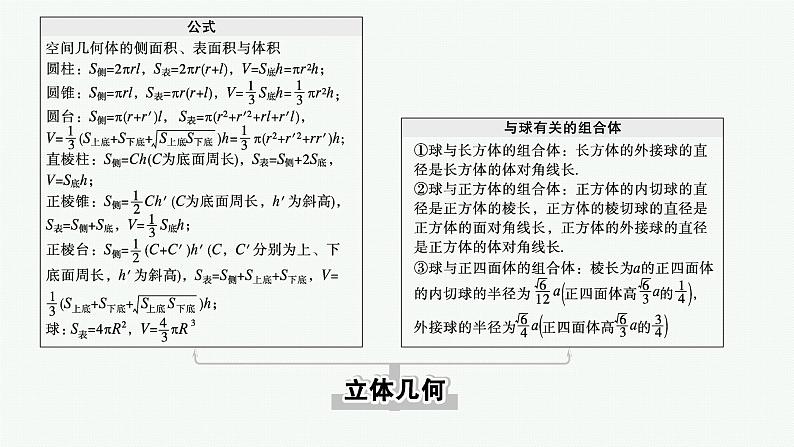 公式
空间几何体的侧面积、表面积与体积
圆柱：S侧=2πrl，S表=2πr(r+l)，V=S底h=πr²h；
圆锥：S侧=πrl，S表=πr(r+l)，V=1/3 S底h=1/3 πr²h；
圆台：S侧=π(r+r′)l，S表=π(r²+r′²+rl+r′l)，
V=1/3(S上底+S下底+√(S上底S下底))h=1/3 π(r²+r′²+rr′)h；
直棱柱：S侧=Ch(C为底面周长)，S表=S侧+2S底，
V=S底h；
正棱锥：S侧=1/2 Ch′(C为底面周长，h′为斜高)，
S表=S侧+S底，V=1/3 S底h；
正棱台：S侧=1/2 (C+C′)h′(C，C′分别为上、下
底面周长，h′为斜高)，S表=S侧+S上底+S下底，V=
1/3(S上底+S下底+√(S上底S下底))h；
球：S表=4πR²，V=4/3 πR³
与球有关的组合体
①球与长方体的组合体：长方体的外接球的直
径是长方体的体对角线长.
②球与正方体的组合体：正方体的内切球的直
径是正方体的棱长，正方体的棱切球的直径是
正方体的面对角线长，正方体的外接球的直径
是正方体的体对角线长.
③球与正四面体的组合体：棱长为a的正四面体
的内切球的半径为√6/12 a(正四面体高√6/3 a的1/4)，
外接球的半径为√6/4 a(正四面体高√6/3 a的3/4)
立体几何